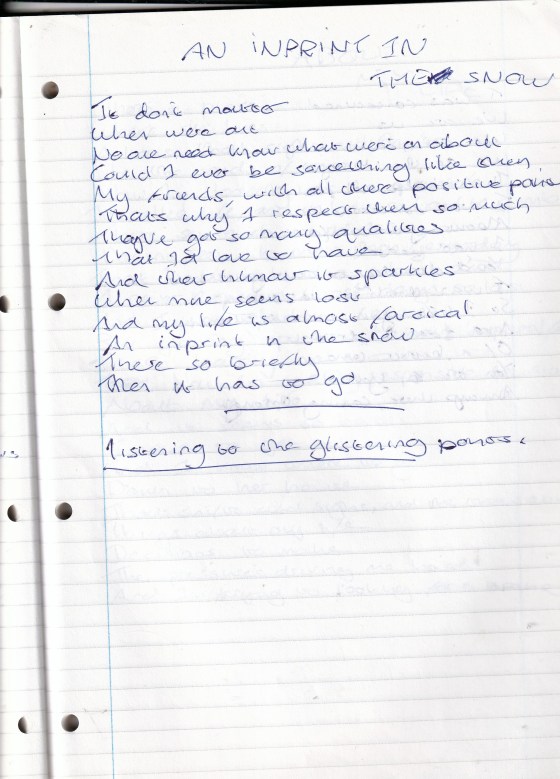 AN INPRINT IN
THE SNOW
It dont matter
When were out
No one need know what were on about
Could I ever be something like them
My friends, with all there positive points
Thats why I respect them so much
They've got so many qualities
That I'd love to have
And their humour it sparkles
When mine seems lost
And my life is almost farcical
An inprint in the snow
There so briefly
Then it has to go
Listening to the glistering points.